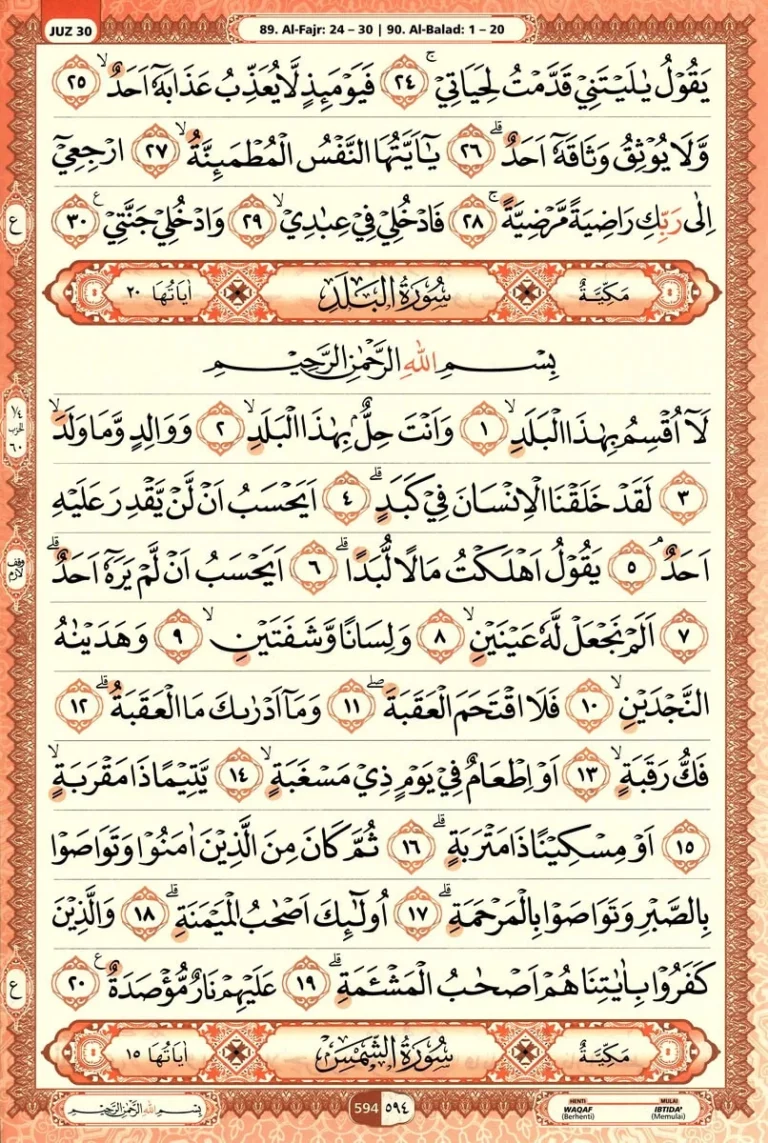 JUZ 30
89. Al-Fajr: 24 – 30 | 90. Al-Balad: 1 – 20
يَقُوْلُ يٰلَيْتَنِيْ قَدَّمْتُ لِحَيَاتِيْۚ ٢٤ فَيَوْمَئِذٍ لَّا يُعَذِّبُ عَذَابَهٗٓ اَحَدٌۙ ٢٥
وَّلَا يُوْثِقُ وَثَاقَهٗٓ اَحَدٌۗ ٢٦ يٰٓاَيَّتُهَا النَّفْسُ الْمُطْمَىِٕنَّةُۙ ٢٧ ارْجِعِيْٓ
اِلٰى رَبِّكِ رَاضِيَةً مَّرْضِيَّةًۚ ٢٨ فَادْخُلِيْ فِيْ عِبٰدِيْۙ ٢٩ وَادْخُلِيْ جَنَّتِيْ ࣖ ٣٠
مَكِّيَّةٌ سُوْرَةُ الْبَلَدِ اٰيَاتُهَا ٢٠
بِسْمِ اللّٰهِ الرَّحْمٰنِ الرَّحِيْمِ
لَآ اُقْسِمُ بِهٰذَا الْبَلَدِۙ ١ وَاَنْتَ حِلٌّۢ بِهٰذَا الْبَلَدِۙ ٢ وَوَالِدٍ وَّمَا وَلَدَۙ
٣ لَقَدْ خَلَقْنَا الْاِنْسَانَ فِيْ كَبَدٍۗ ٤ اَيَحْسَبُ اَنْ لَّنْ يَّقْدِرَ عَلَيْهِ
اَحَدٌۘ ٥ يَقُوْلُ اَهْلَكْتُ مَالًا لُّبَدًاۗ ٦ اَيَحْسَبُ اَنْ لَّمْ يَرَهٗٓ اَحَدٌۗ
٧ اَلَمْ نَجْعَلْ لَّهٗ عَيْنَيْنِۙ ٨ وَلِسَانًا وَّشَفَتَيْنِۙ ٩ وَهَدَيْنٰهُ
النَّجْدَيْنِۙ ١٠ فَلَا اقْتَحَمَ الْعَقَبَةَۖ ١١ وَمَآ اَدْرٰىكَ مَا الْعَقَبَةُۗ ١٢
فَكُّ رَقَبَةٍۙ ١٣ اَوْ اِطْعَامٌ فِيْ يَوْمٍ ذِيْ مَسْغَبَةٍۙ ١٤ يَّتِيْمًا ذَا مَقْرَبَةٍۙ
١٥ اَوْ مِسْكِيْنًا ذَا مَتْرَبَةٍۗ ١٦ ثُمَّ كَانَ مِنَ الَّذِيْنَ اٰمَنُوْا وَتَوَاصَوْا
بِالصَّبْرِ وَتَوَاصَوْا بِالْمَرْحَمَةِۗ ١٧ اُولٰۤىِٕكَ اَصْحٰبُ الْمَيْمَنَةِۗ ١٨ وَالَّذِيْنَ
كَفَرُوْا بِاٰيٰتِنَا هُمْ اَصْحٰبُ الْمَشْـَٔمَةِۗ ١٩ عَلَيْهِمْ نَارٌ مُّؤْصَدَةٌ ࣖ ٢٠
مَكِّيَّةٌ سُوْرَةُ الشَّمْسِ اٰيَاتُهَا ١٥
ع
١/٤
الحزب
٦٠
وقف
لازم
ع
بِسْمِ اللّٰهِ الرَّحْمٰنِ الرَّحِيْمِ
594 ٥٩٤
HENTI MULAI
WAQAF IBTIDA'
(Berhenti) (Memulai)